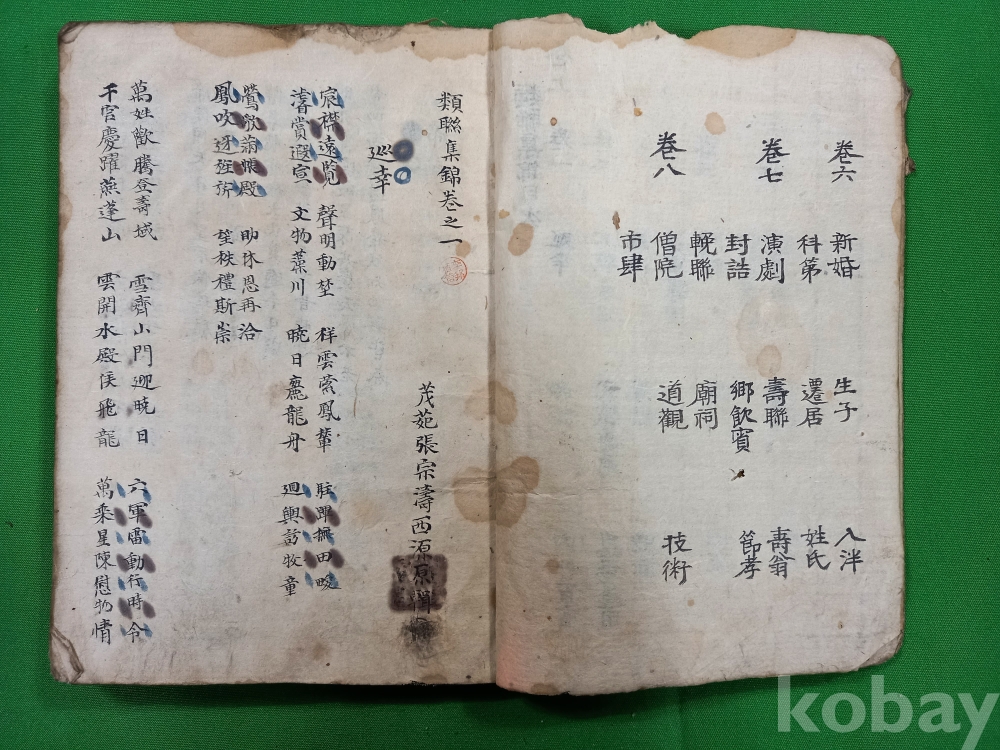 卷六 新婚 生子 入泮
科第 遷居 姓氏
卷七 演劇 壽聯 壽翁
封誥 鄉飮賓 節孝
輓聯 廟祠
卷八 僧院 道觀 技術
市肆
類聯集錦卷之一
茂苑張宗濤西源
巡幸
宸襟遠覽 聲明動埜 祥雲縈鳳輦 駐蹕撫田畯
濳賞遐宣 文物藻川 曉日麗龍舟 廻輿訪牧童
鶯歌 殿 助休恩再洽
鳳吹迓 望秩禮斯崇
萬姓歡騰登壽域 雪齊山門迎曉日 六軍雷動行時令
千官慶躍燕蓬山 雲開水殿俟飛龍 萬乘星陳慰物情
kobay